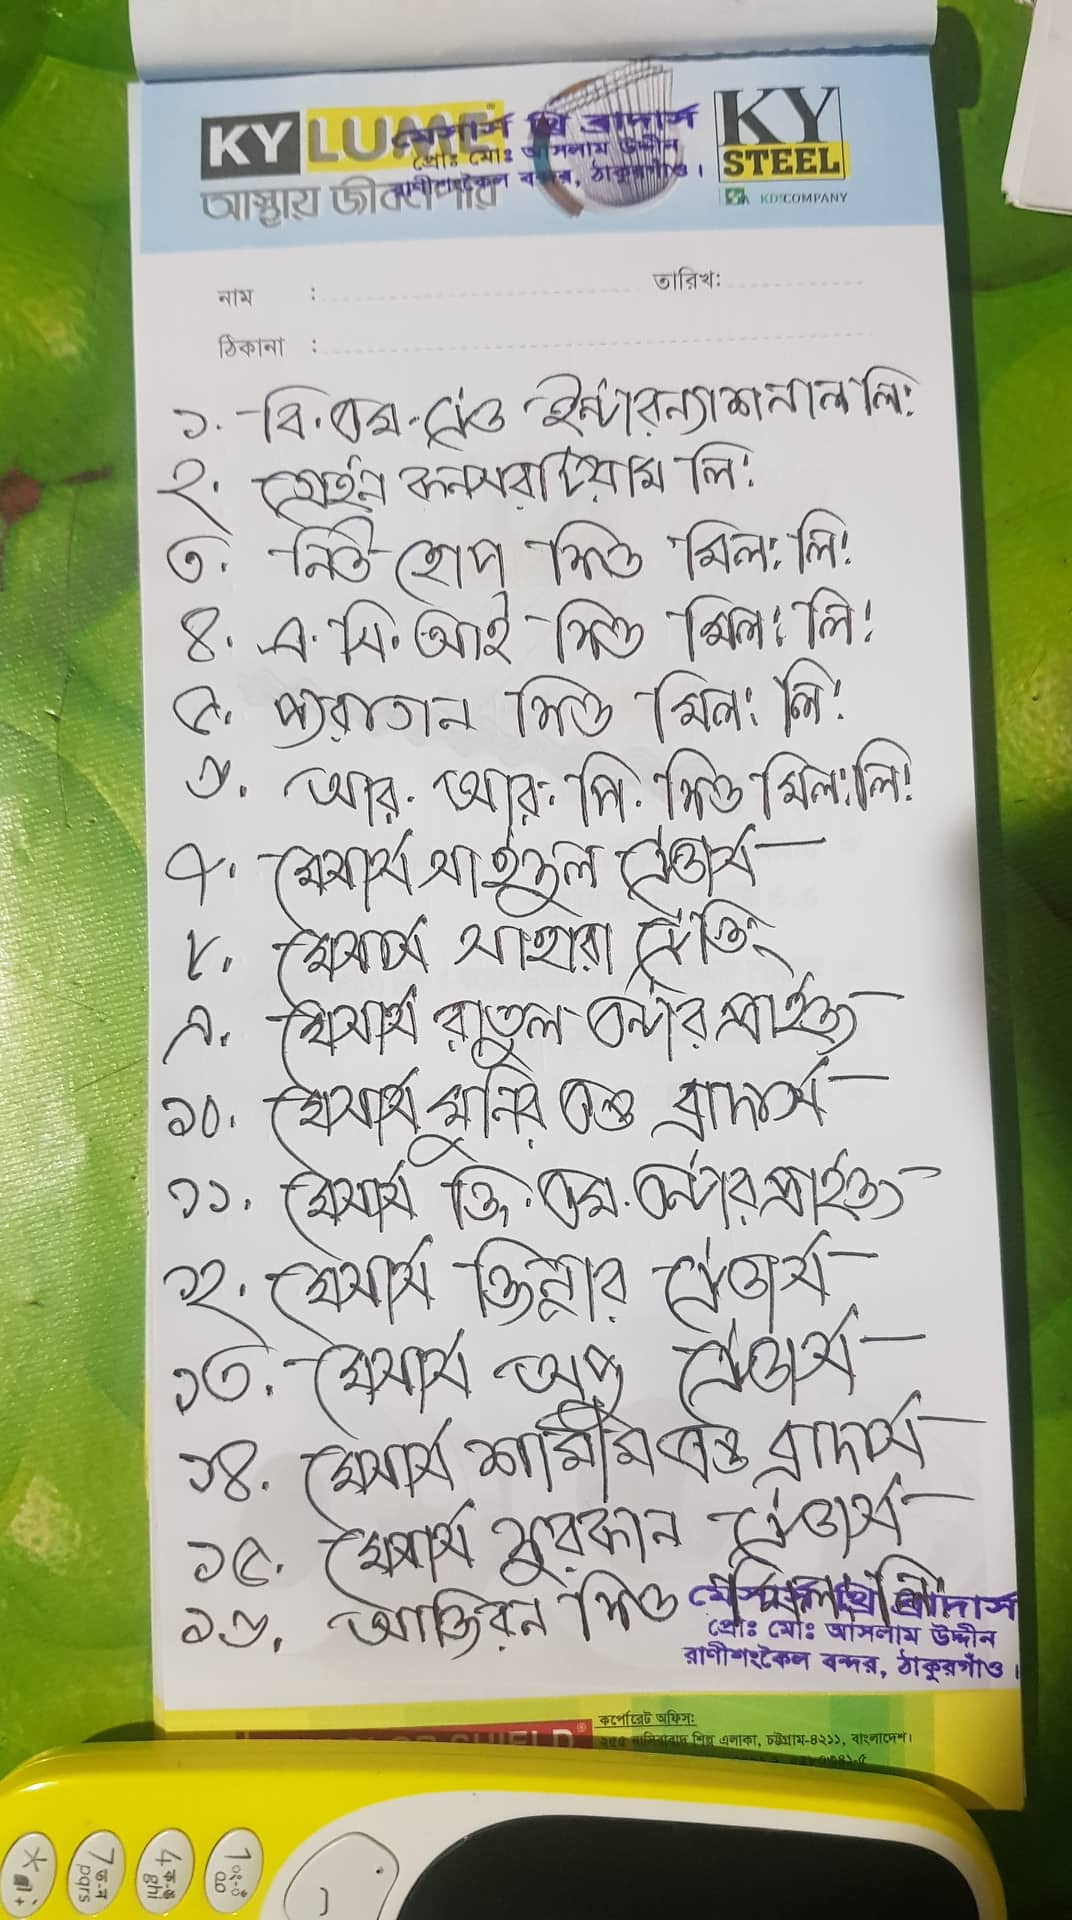 KY LUME
মেসার্স থ্রি ব্রাদার্স
প্রোঃ মোঃ আসলাম উদ্দীন
রাণীশংকৈল বন্দর, ঠাকুরগাঁও।
আস্থায় জীবনপার
KY
STEEL
KDS COMPANY
নাম :
তারিখ:
ঠিকানা :
১. বি.এম. ট্রেড ইন্টারন্যাশনাল লি:
২. গ্রেইন কনসরটিয়াম লি:
৩. নিউ হোপ ফিড মিল: লি:
৪. এ. সি. আই ফিড মিল: লি:
৫. প্যারাগন ফিড মিল: লি:
৬. আর. আর. পি. ফিড মিল: লি:
৭. মেসার্স সাইদুল ট্রেডার্স
৮. মেসার্স সাহারা ট্রেডিং
৯. মেসার্স রাতুল এন্টার প্রাইজ
১০. মেসার্স মুনির এন্ড ব্রাদার্স
১১. মেসার্স জি.এম. এন্টার প্রাইজ
১২. মেসার্স জিন্নার ট্রেডার্স
১৩. মেসার্স অপু ট্রেডার্স
১৪. মেসার্স শামীম এন্ড ব্রাদার্স
১৫. মেসার্স ফুরকান ট্রেডার্স
১৬. আজিরন ফিড মিল: লি:
মেসার্স থ্রি ব্রাদার্স
প্রোঃ মোঃ আসলাম উদ্দীন
রাণীশংকৈল বন্দর, ঠাকুরগাঁও।
কর্পোরেট অফিস:
২৫৫ নাসিরাবাদ শিল্প এলাকা, চট্টগ্রাম-৪২১১, বাংলাদেশ।
1
4 ghi
7 pqrs